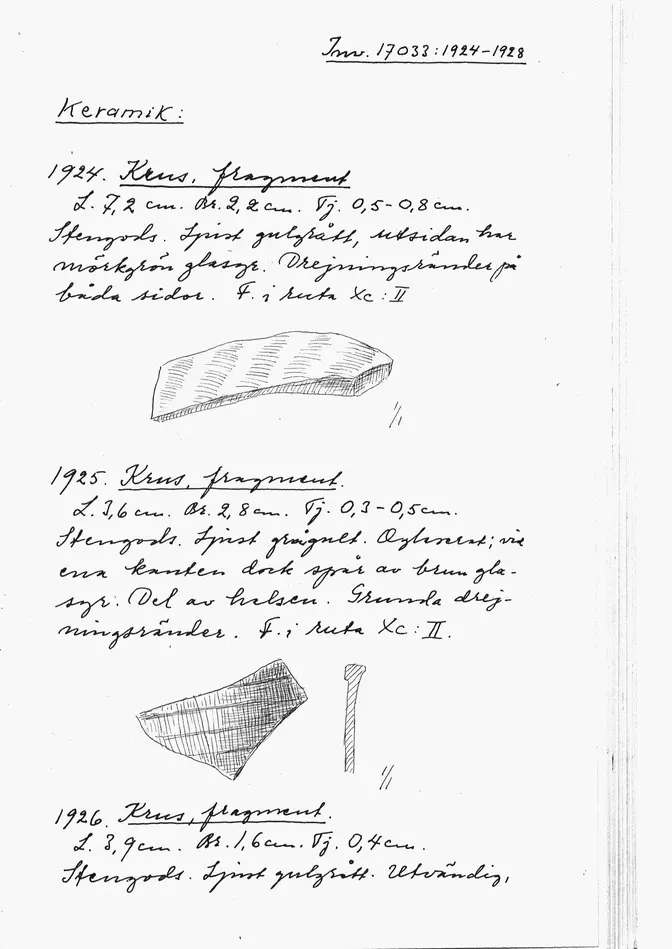 Inv. 17033:1924-1928
Keramik:
1924. Krus, fragment
L. 7,2 cm. Br. 2,2 cm. Tj. 0,5-0,8 cm.
Stengods. Ljust gulgrått, utsidan har
mörkgrön glasyr. Drejningsränder på
båda sidor. F. i ruta Xc:II
1/1
1925. Krus, fragment.
L. 3,6 cm. Br. 2,8 cm. Tj. 0,3-0,5 cm.
Stengods. Ljust grågult. Oglaserat; vid
ena kanten dock spår av brun gla-
syr. Del av halsen. Grunda drej-
ningsränder. F. i ruta Xc:II.
1/1
1926. Krus, fragment.
L. 3,9 cm. Br. 1,6 cm. Tj. 0,4 cm.
Stengods. Ljust gulgrått. Utvändig,